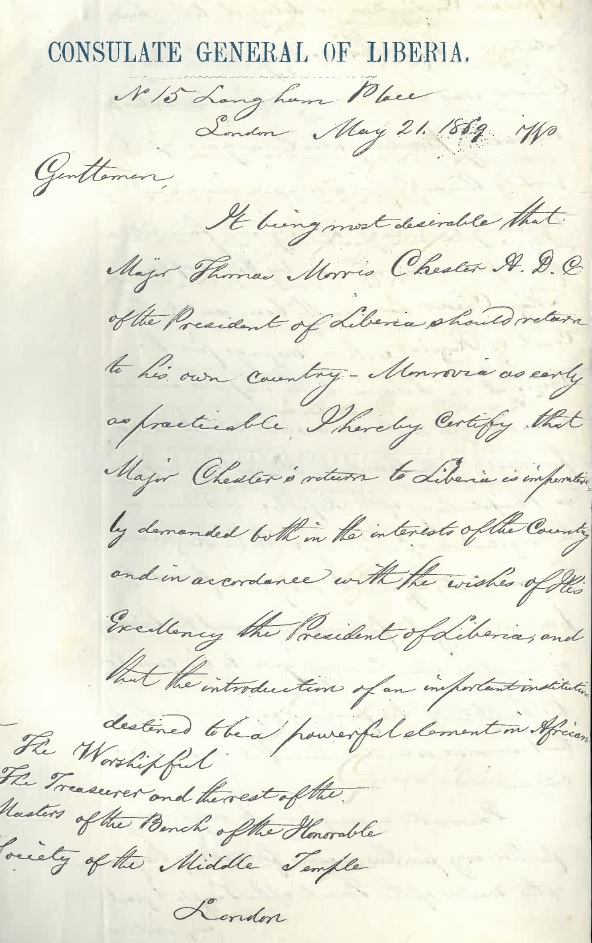 CONSULATE GENERAL OF LIBERIA.
No 15 Langham Place
London May 21. 1869 W
Gentlemen,
It being most desirable that
Major Thomas Morris Chester A. D. C
of the President of Liberia should return
to his own country - Monrovia as early
as practicable, I hereby Certify that
Major Chester's return to Liberia is imperative-
ly demanded both in the interests of the Country
and in accordance with the wishes of His
Excellency the President of Liberia, and
that the introduction of an important institution
destined to be a powerful element in African
The Worshipful
The Treasurer and the rest of the
Masters of the Bench of the Honorable
Society of the Middle Temple
London